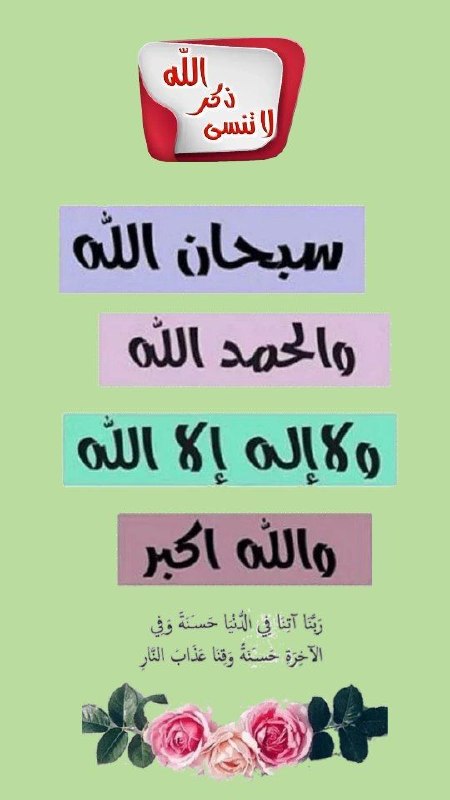 لا تنسى
ذكر
الله
سبحان الله
والحمد الله
ولا إله إلا الله
والله اكبر
رَبَّنَا آتِنَا فِي الدُّنْيَا حَسَنَةً وَفِي
الآخِرَةِ حَسَنَةً وَقِنَا عَذَابَ النَّارِ